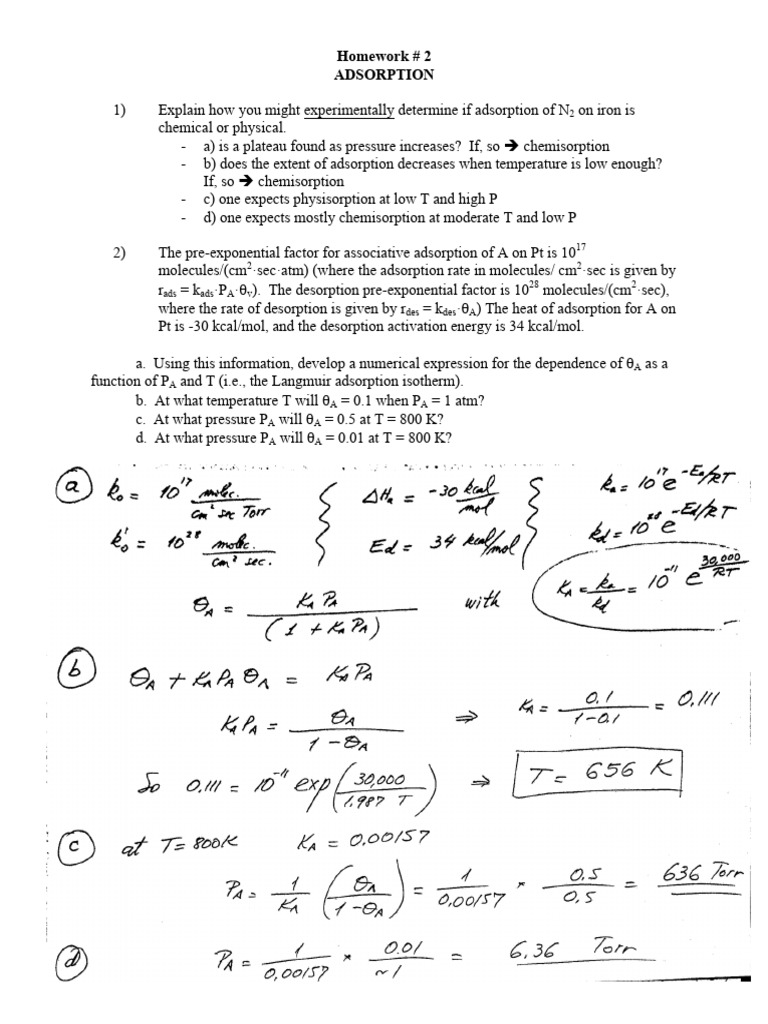 Homework # 2
ADSORPTION
1) Explain how you might experimentally determine if adsorption of N₂ on iron is
chemical or physical.
- a) is a plateau found as pressure increases? If, so ➔ chemisorption
- b) does the extent of adsorption decreases when temperature is low enough?
If, so ➔ chemisorption
- c) one expects physisorption at low T and high P
- d) one expects mostly chemisorption at moderate T and low P
2) The pre-exponential factor for associative adsorption of A on Pt is 10¹⁷
molecules/(cm²·sec·atm) (where the adsorption rate in molecules/ cm²·sec is given by
r_ads = k_ads·P_A·θ_v). The desorption pre-exponential factor is 10²⁸ molecules/(cm²·sec),
where the rate of desorption is given by r_des = k_des·θ_A) The heat of adsorption for A on
Pt is -30 kcal/mol, and the desorption activation energy is 34 kcal/mol.
a. Using this information, develop a numerical expression for the dependence of θ_A as a
function of P_A and T (i.e., the Langmuir adsorption isotherm).
b. At what temperature T will θ_A = 0.1 when P_A = 1 atm?
c. At what pressure P_A will θ_A = 0.5 at T = 800 K?
d. At what pressure P_A will θ_A = 0.01 at T = 800 K?
(a) k₀ = 10¹⁷ molec./(cm² sec Torr) ΔH_a = -30 kcal/mol k_a = 10¹⁷ e^(-Ea/RT)
k₀' = 10²⁸ molec./(cm² sec.) Ed = 34 kcal/mol k_d = 10²⁸ e^(-Ed/RT)
θ_A = K_A P_A / (1 + K_A P_A) with K_A = k_a/k_d = 10⁻¹¹ e^(30,000/RT)
(b) θ_A + K_A P_A θ_A = K_A P_A
K_A P_A = θ_A/(1 - θ_A) ⇒ K_A = 0.1/(1-0.1) = 0.111
So 0.111 = 10⁻¹¹ exp(30,000/(1.987 T)) ⇒ T = 656 K
(c) at T = 800K K_A = 0.00157
P_A = 1/K_A (θ_A/(1-θ_A)) = 1/0.00157 * 0.5/0.5 = 636 Torr
(d) P_A = 1/0.00157 * 0.01/~1 = 6.36 Torr